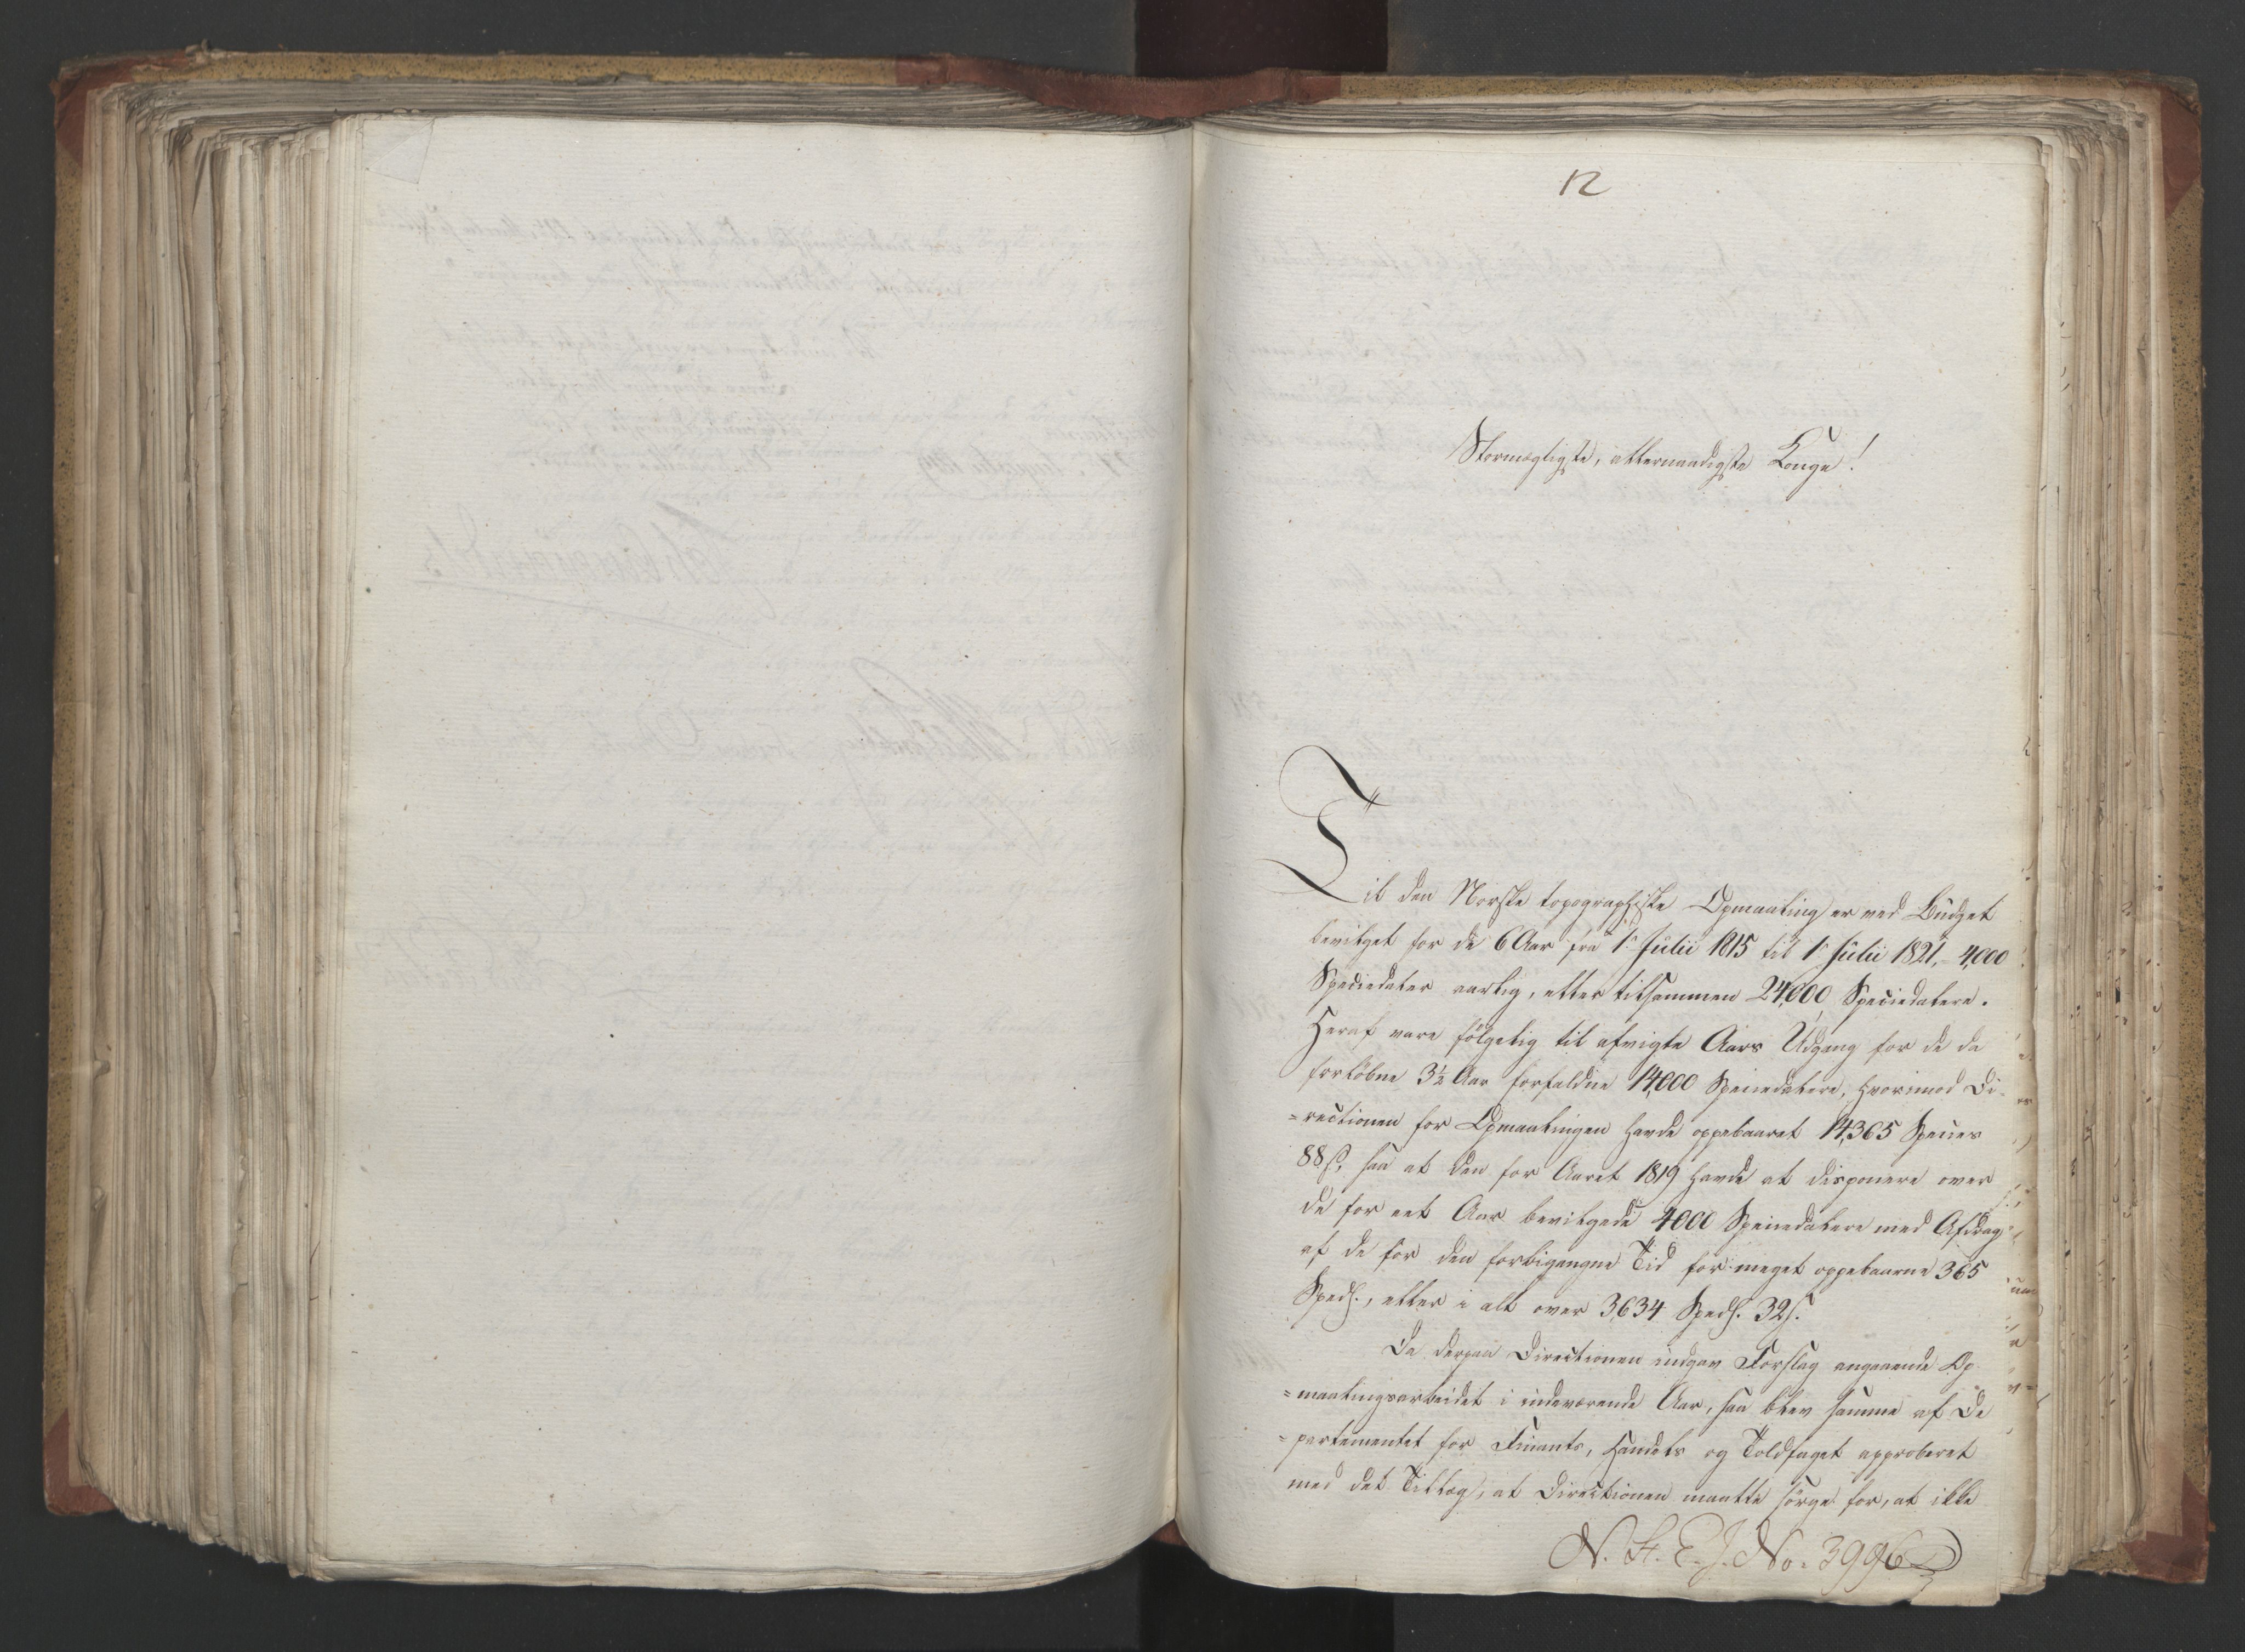 12
Stormægtigste, allernaadigste Konge!
Til den Norske topographiske Opmaaling er ved Budget
bevilget for de 6 Aar fra 1ᵗ Julii 1815 til 1ᵗ Julii 1821, 4,000
Speciedaler aarlig, eller tilsammen 24,000 Speciedalere.
Heraf vare følgelig til afvigte Aars Udgang for de da
forløbne 3½ Aar forfaldne 14,000 Speciedalere, hvorimod Di-
=rectionen for Opmaalingen havde oppebaaret 14,365 Species
88 s, saa at den for Aaret 1819 havde at disponere over
de for eet Aar bevilgede 4000 Speciedalere med Afdrag
af de for den forbigangne Tid for meget oppebaarne 365
Spedl., eller i alt over 3,634 Spedl. 32 s.
Da derpaa Directionen indgav Forslag angaaende Op-
=maalingsarbeidet i indeværende Aar, saa blev samme af De
=partementet for Finants, Handels og Toldfaget approberet
med det Tillæg, at Directionen maatte sørge for, at ikke
N. St. E. J. No. 3996